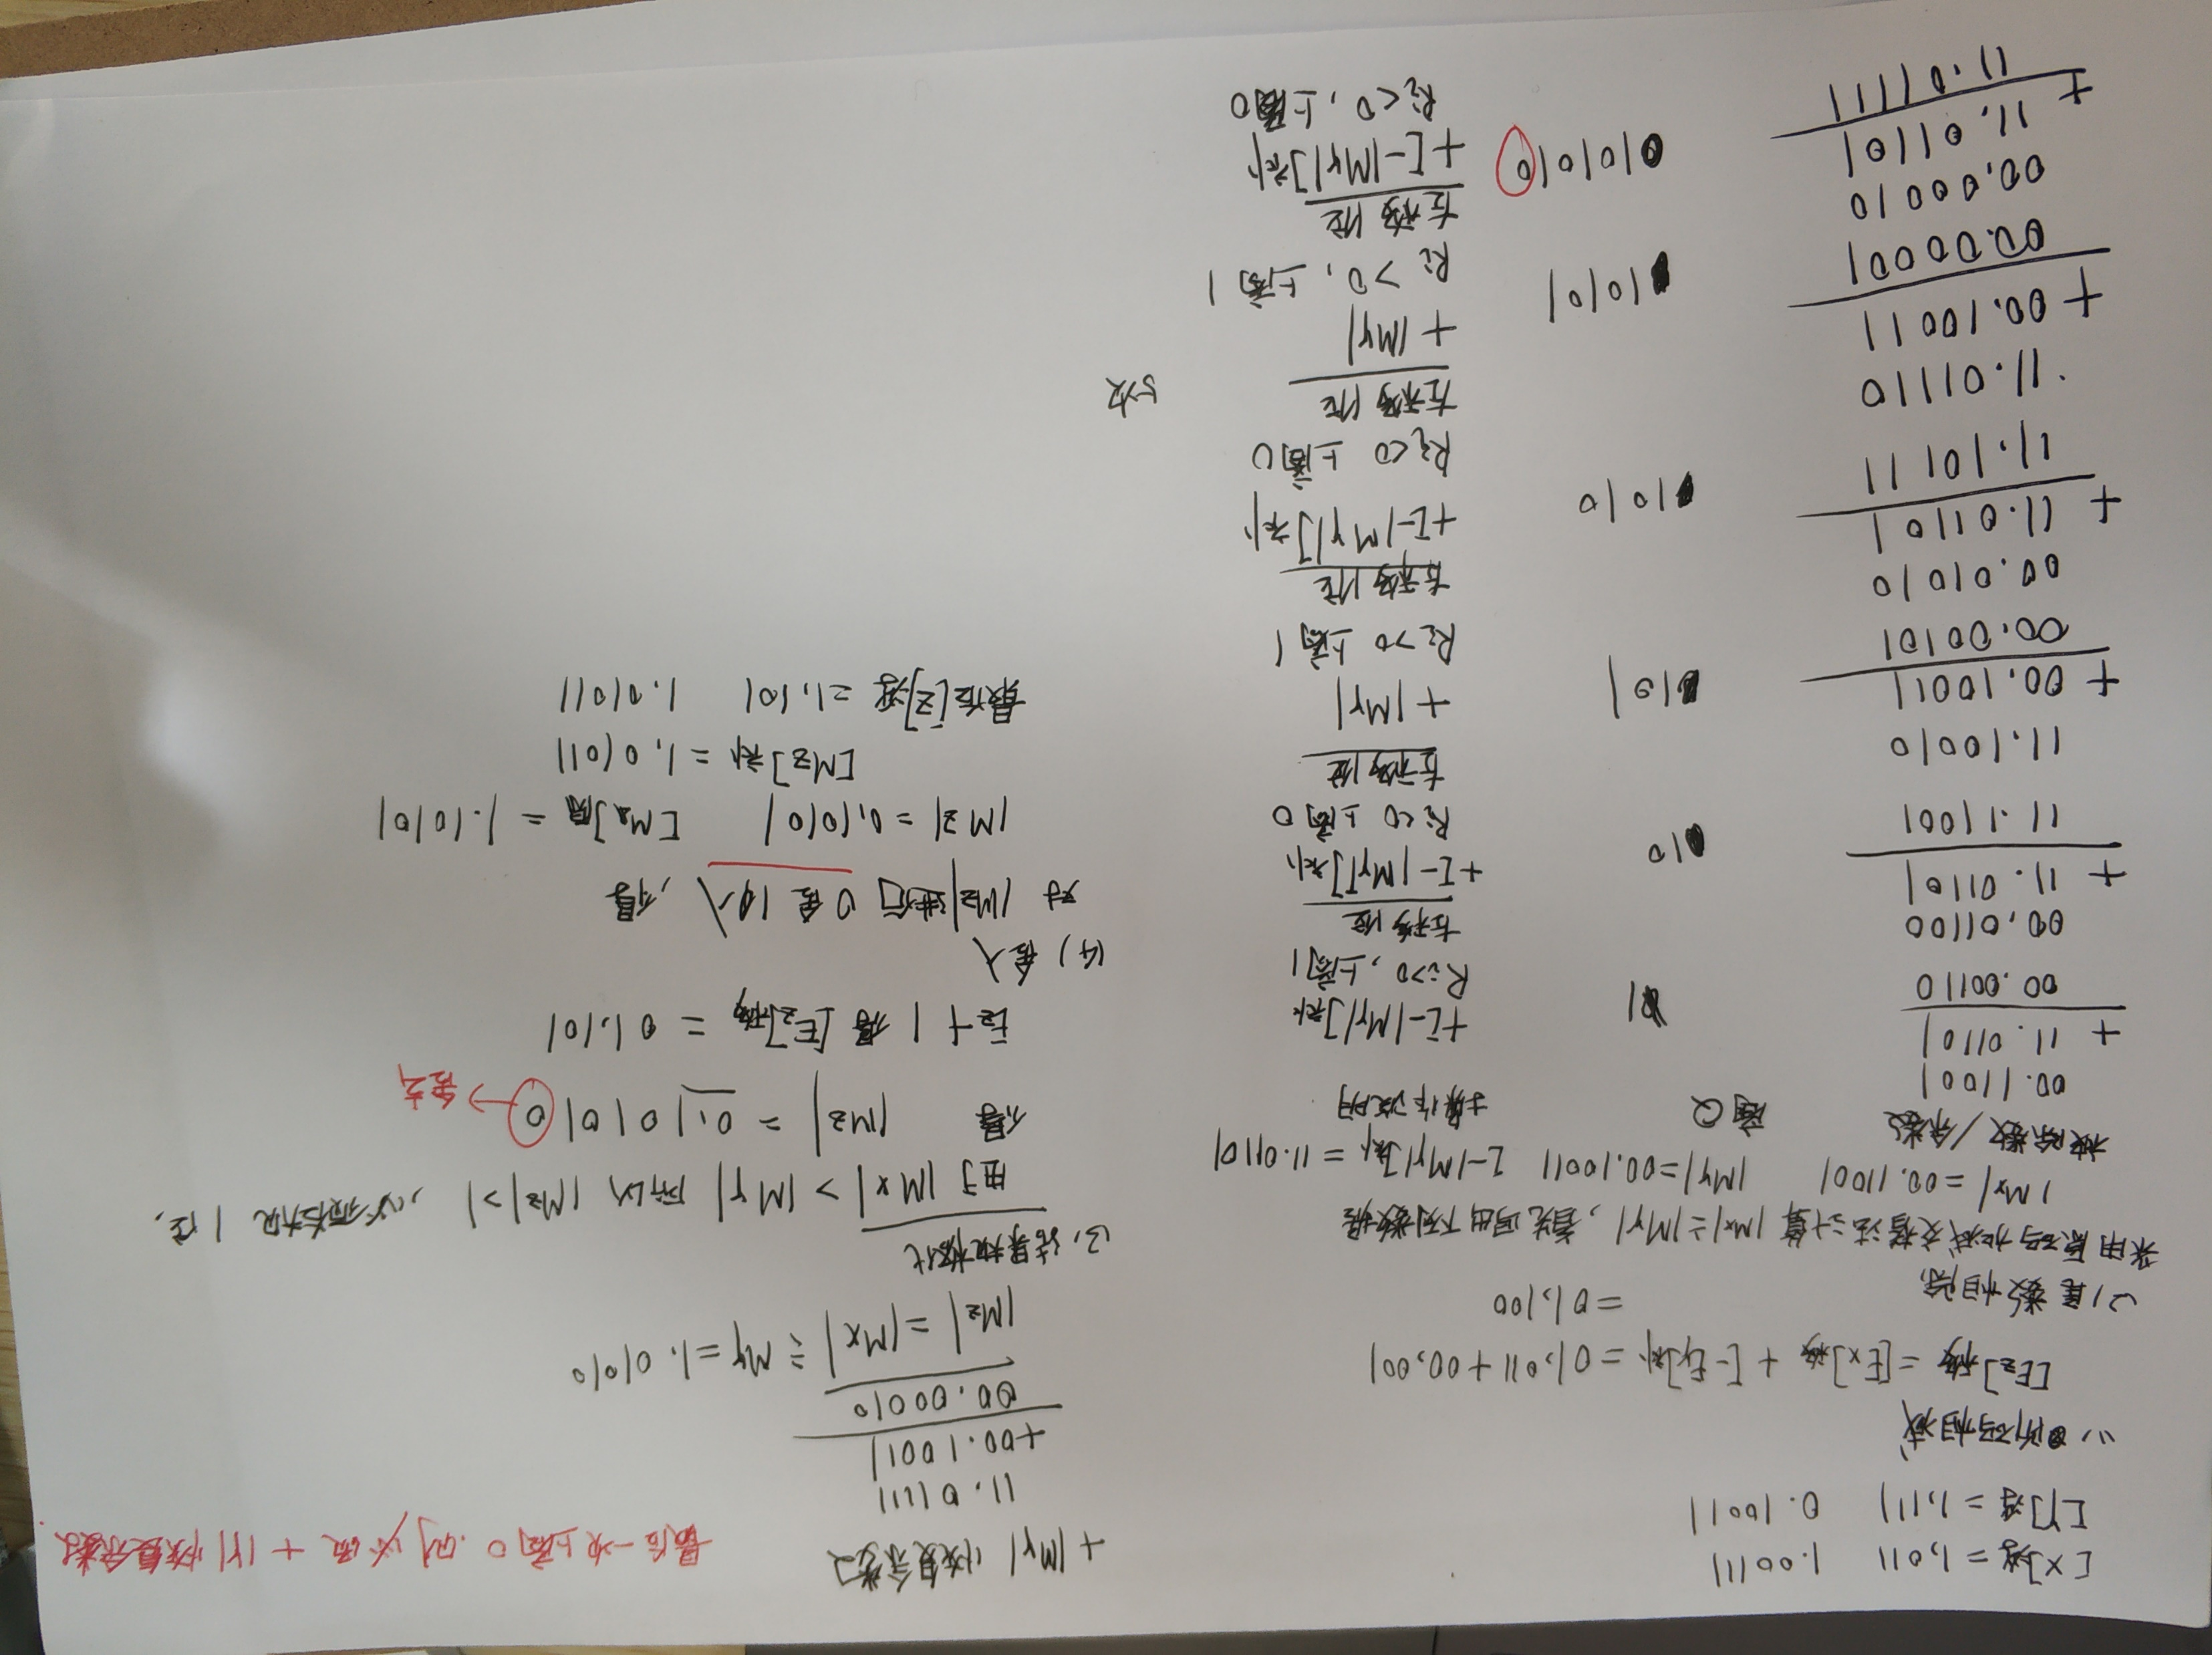 [X]浮 = 1,011 1.00111
[Y]浮 = 1,111 0.10011
(1) 阶码相减
[Ez]移 = [Ex]移 + [-Ey]补 = 01,011+00,001
=01,100
(2) 尾数相除
采用原码加减交替法计算 |Mx|÷|My|,首先写出下列数据
|Mx| =00.11001 |My|=00.10011 [-|My|]补 = 11.01101
被除数/余数 商Q 操作说明
00.11001
+ 11.01101 +[-|My|]补
00.00110 1 Ri>0,上商1
00.01100 左移1位
+ 11.01101 +[-|My|]补
11.11001 10 Ri<0 上商0
11.10010 左移1位
+ 00.10011 +|My|
00.00101 101 Ri>0 上商1
00.01010 左移1位
+ 11.01101 +[-|My|]补
11.10111 1010 Ri<0 上商0
11.01110 左移1位 5次
+ 00.10011 +|My|
00.00001 10101 Ri>0,上商1
00.00010 左移1位
+ 11.01101 101010 +[-|My|]补
11.01111 Ri<0,上商0
+|My| 恢复余数 最后一次上商0.则必须 + |Y| 恢复余数.
11.01111
+00.10011
00.00010
|Mz| = |Mx| ÷ My = 1.01010
(3) 结果规格化
由于 |Mx| > |My| 所以 |Mz|>1,必须右规1位,
得 |Mz| = 0.101010 → 舍去
Ez+1 得 [Ez]移 = 01,101
(4) 舍入
对 |Mz|进行 0舍1入,得
|Mz| = 0.10101 [Mz]原 = 1.10101
[Mz]补 = 1.01011
最后[Z]浮 =1,101 1.01011